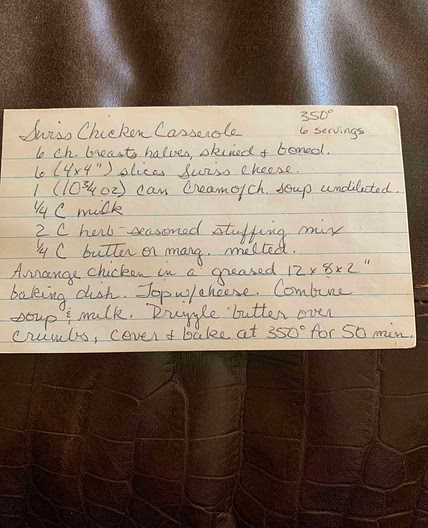 350°
Swiss Chicken Casserole 6 servings
6 ch. breasts halves, skined & boned.
6 (4x4") slices Swiss cheese.
1 (10 3/4 oz) can Cream of ch. soup undiluted.
1/4 C milk
2 C herb-seasoned stuffing mix
1/4 C butter or marg. melted.
Arrange chicken in a greased 12x8x2"
baking dish. Top w/cheese. Combine
soup & milk. Drizzle butter over
crumbs, cover & bake at 350° for 50 min.